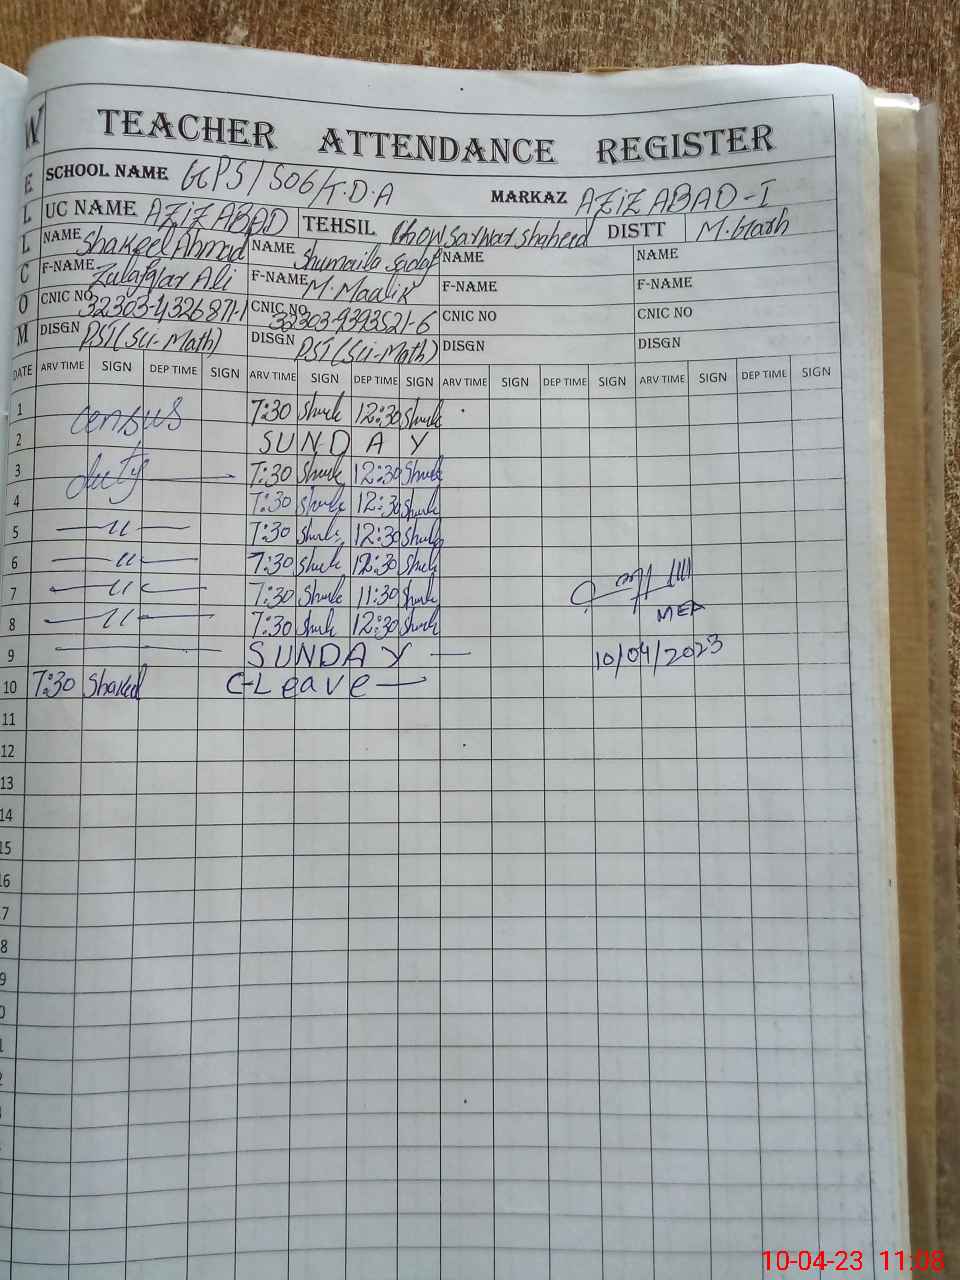 WELCOM
TEACHER ATTENDANCE REGISTER
SCHOOL NAME GGPS/506/T.D.A MARKAZ AZIZ ABAD-I
UC NAME AZIZ ABAD TEHSIL Chow Sarwar Shaheed DISTT M.Garh
NAME Shakeel Ahmad NAME Shumaila Sadaf NAME NAME
F-NAME Zulafqar Ali F-NAME M. Maalik F-NAME F-NAME
CNIC NO 32303-4326871-1 CNIC NO 32303-9393521-6 CNIC NO CNIC NO
DISGN PST (Sci-Math) DISGN PST (Sci-Math) DISGN DISGN
DATE ARV TIME SIGN DEP TIME SIGN ARV TIME SIGN DEP TIME SIGN ARV TIME SIGN DEP TIME SIGN ARV TIME SIGN DEP TIME SIGN
1 census 7:30 12:30
2 SUNDAY
3 duty 7:30 12:30
4 7:30 12:30
5 — 11 — 7:30 12:30
6 — 11 — 7:30 12:30
7 — 11 — 7:30 11:30
8 — 11 — 7:30 12:30
MEA
9 — SUNDAY — 10/04/2023
10 7:30 Shakeel C-Leave —
11
12
13
14
15
16
7
8
9
0
1
2
10-04-23 11:08